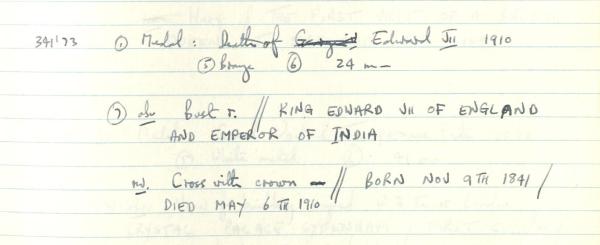 341'73 ① Medal : Death of George V Edward VII 1910
⑤ Bronze ⑥ 24 mm
⑦ obv Bust r. // KING EDWARD VII OF ENGLAND
AND EMPEROR OF INDIA
rev. Cross with crown // BORN NOV 9TH 1841 /
DIED MAY 6TH 1910